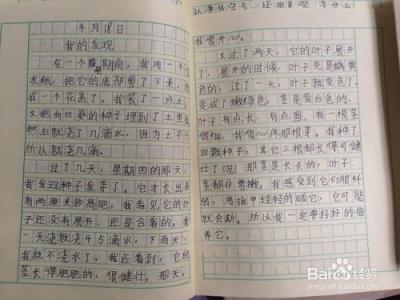 4月18日
我的发现
在一个星期前,我用一个
水瓶,把它的底部剪了下来,
成一个花盆了。我装了一点土,
又把向日葵的种子埋到了土里
然后就浇了几滴水,因为土不干
所以就浇几滴。
过了几天,星期四的那天
我发现种子发芽了。它才长出来
有两厘米多高吧。我看见它的叶
子还没有展开,还是合着的。我
一天浇就是4 5滴水,下雨天,
我就不浇水了。我还看到,它的
茎长得肥肥的,很健壮。那天,
我很开心。
又过了两天,它的叶子展开
了,展开的时候,叶子先是嫩黄
色的,过了一天,叶子就变色了,
变成了嫩绿色,茎是变白色的。
叶子有点长,有点圆,有一根茎
很细。我很心疼那根芽。我种了
四颗种子。其它三根都长得可健
壮了呢!那茎是长长的,叶子、
茎都非常嫩。我感到它们很纤
弱,用指甲轻轻的碰它,它可能
就会断。所以我一定要好好的培
养它。
Baidu 经验
jingyan.baidu.com